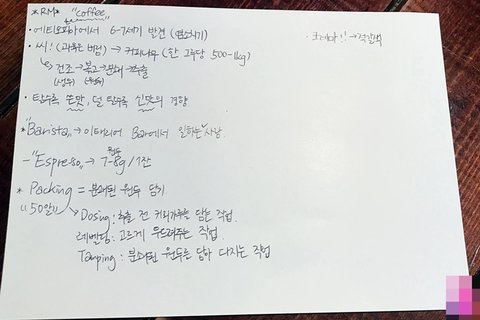 *RM* "coffee"
• 에티오피아에서 6-7세기 발견 (염소치기)
• 씨! (과육은 버림) → 커피나무 (한 그루당 500-1kg)
↳ 건조 → 볶고 → 분쇄 → 추출
(생두) (원두)
• 탈수록 쓴맛, 덜 탈수록 신맛의 경향
크레마!! → 적갈색
*"Barista" → 이태리어 Bar에서 일하는 사람
- "Espresso" → 원두 7-8g / 1잔
* Packing = 분쇄된 원두 담기
Dosing : 추출 전 커피가루를 담는 작업.
레벨링 : 고르게 두드려주는 작업.
Tamping : 분쇄된 원두를 담아 다지는 작업